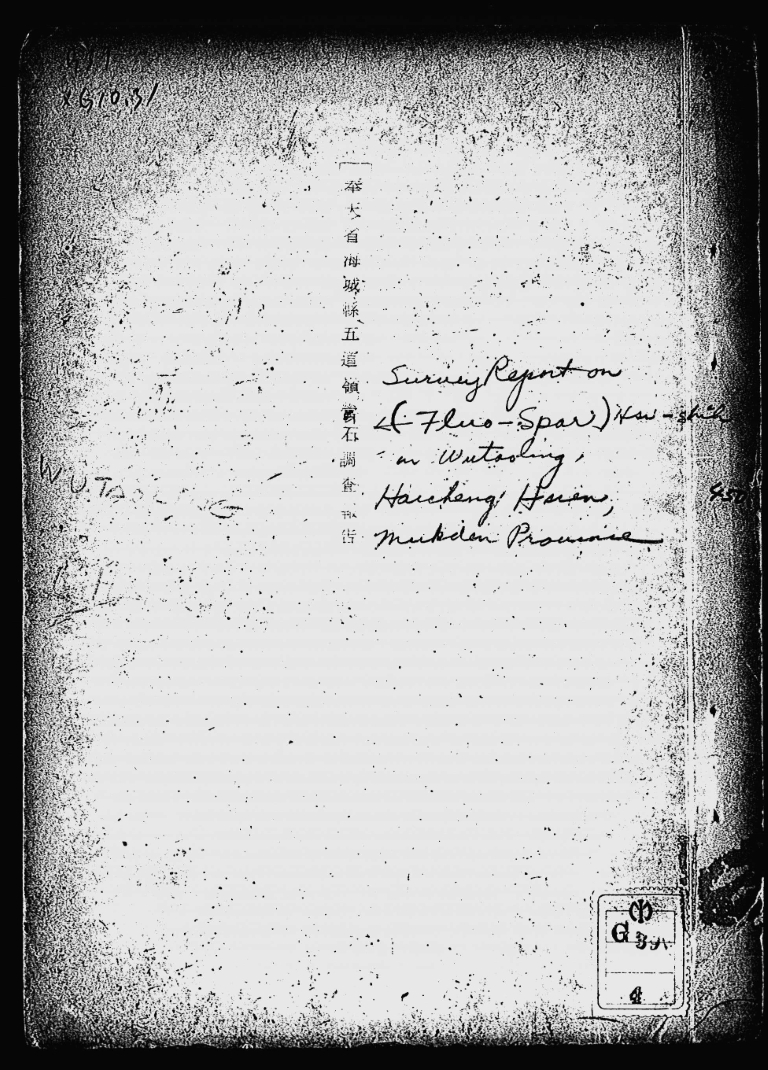 XG10.31
奉天省海城縣五道領螢石調査報告
Survey Report on
(Fluo-Spar) Hsi-shih
in Wutaoling,
Haicheng Hsien,
Mukden Province
WUTAOLING
G
4